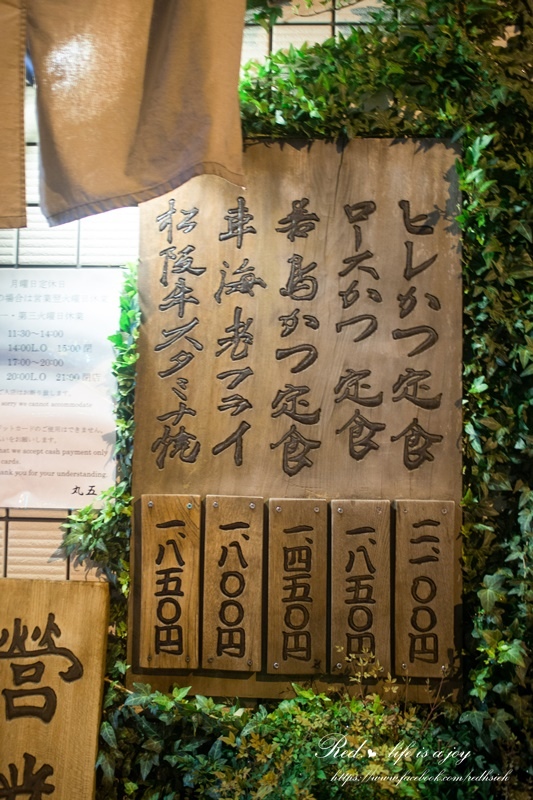 ヒレかつ定食
ロースかつ定食
若鳥かつ定食
車海老フライ
松阪牛スタミナ焼
二、一〇〇円
一、八五〇円
一、四五〇円
一、八〇〇円
一、八五〇円
月曜日定休日
の場合は営業翌火曜日休業
・第三火曜日休業
11:30～14:00
14:00L.O 15:00閉
17:00～20:00
20:00L.O 21:00閉
sorry we cannot accommodate
ットカードのご使用はできません
をお願いします。
hat we accept cash payment only
cards.
hank you for your understanding
丸五
営業
Red life is a joy
https://www.facebook.com/redhsieh